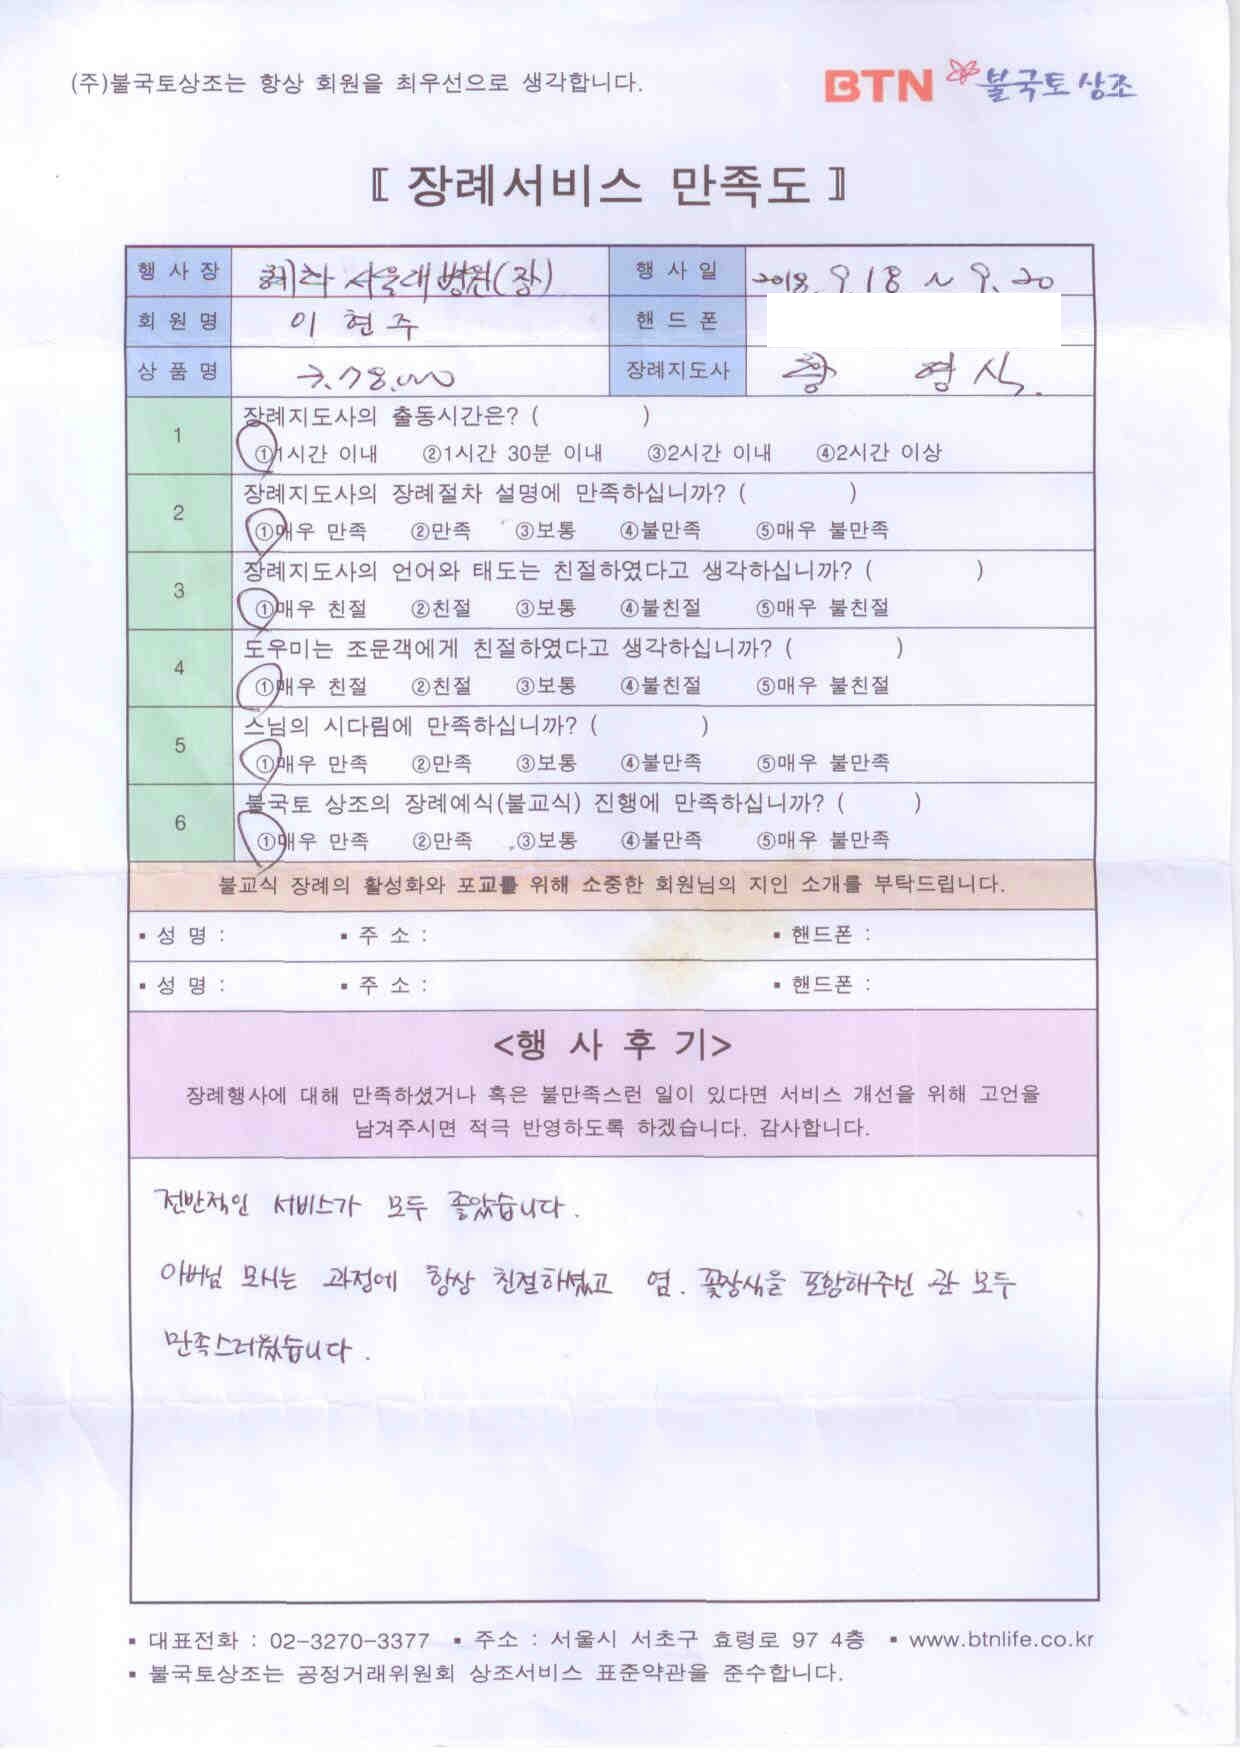 (주)불국토상조는 항상 회원을 최우선으로 생각합니다.
BTN 불국토 상조
〖 장례서비스 만족도 〗
행 사 장 서울대 병원(장) 행 사 일 2018. 9. 18 ~ 9. 20
회 원 명 이 현 주 핸 드 폰
상 품 명 장례지도사 황 형 식.
1 장례지도사의 출동시간은? ( )
①1시간 이내 ②1시간 30분 이내 ③2시간 이내 ④2시간 이상
2 장례지도사의 장례절차 설명에 만족하십니까? ( )
①매우 만족 ②만족 ③보통 ④불만족 ⑤매우 불만족
3 장례지도사의 언어와 태도는 친절하였다고 생각하십니까? ( )
①매우 친절 ②친절 ③보통 ④불친절 ⑤매우 불친절
4 도우미는 조문객에게 친절하였다고 생각하십니까? ( )
①매우 친절 ②친절 ③보통 ④불친절 ⑤매우 불친절
5 스님의 시다림에 만족하십니까? ( )
①매우 만족 ②만족 ③보통 ④불만족 ⑤매우 불만족
6 불국토 상조의 장례예식(불교식) 진행에 만족하십니까? ( )
①매우 만족 ②만족 ③보통 ④불만족 ⑤매우 불만족
불교식 장례의 활성화와 포교를 위해 소중한 회원님의 지인 소개를 부탁드립니다.
▪ 성 명 : ▪ 주 소 : ▪ 핸드폰 :
▪ 성 명 : ▪ 주 소 : ▪ 핸드폰 :
<행 사 후 기>
장례행사에 대해 만족하셨거나 혹은 불만족스런 일이 있다면 서비스 개선을 위해 고언을
남겨주시면 적극 반영하도록 하겠습니다. 감사합니다.
전반적인 서비스가 모두 좋았습니다.
아버님 모시는 과정에 항상 친절하셨고 염. 꽃장식을 포함해주신 관 모두
만족스러웠습니다.
▪ 대표전화 : 02-3270-3377 ▪ 주소 : 서울시 서초구 효령로 97 4층 ▪ www.btnlife.co.kr
▪ 불국토상조는 공정거래위원회 상조서비스 표준약관을 준수합니다.